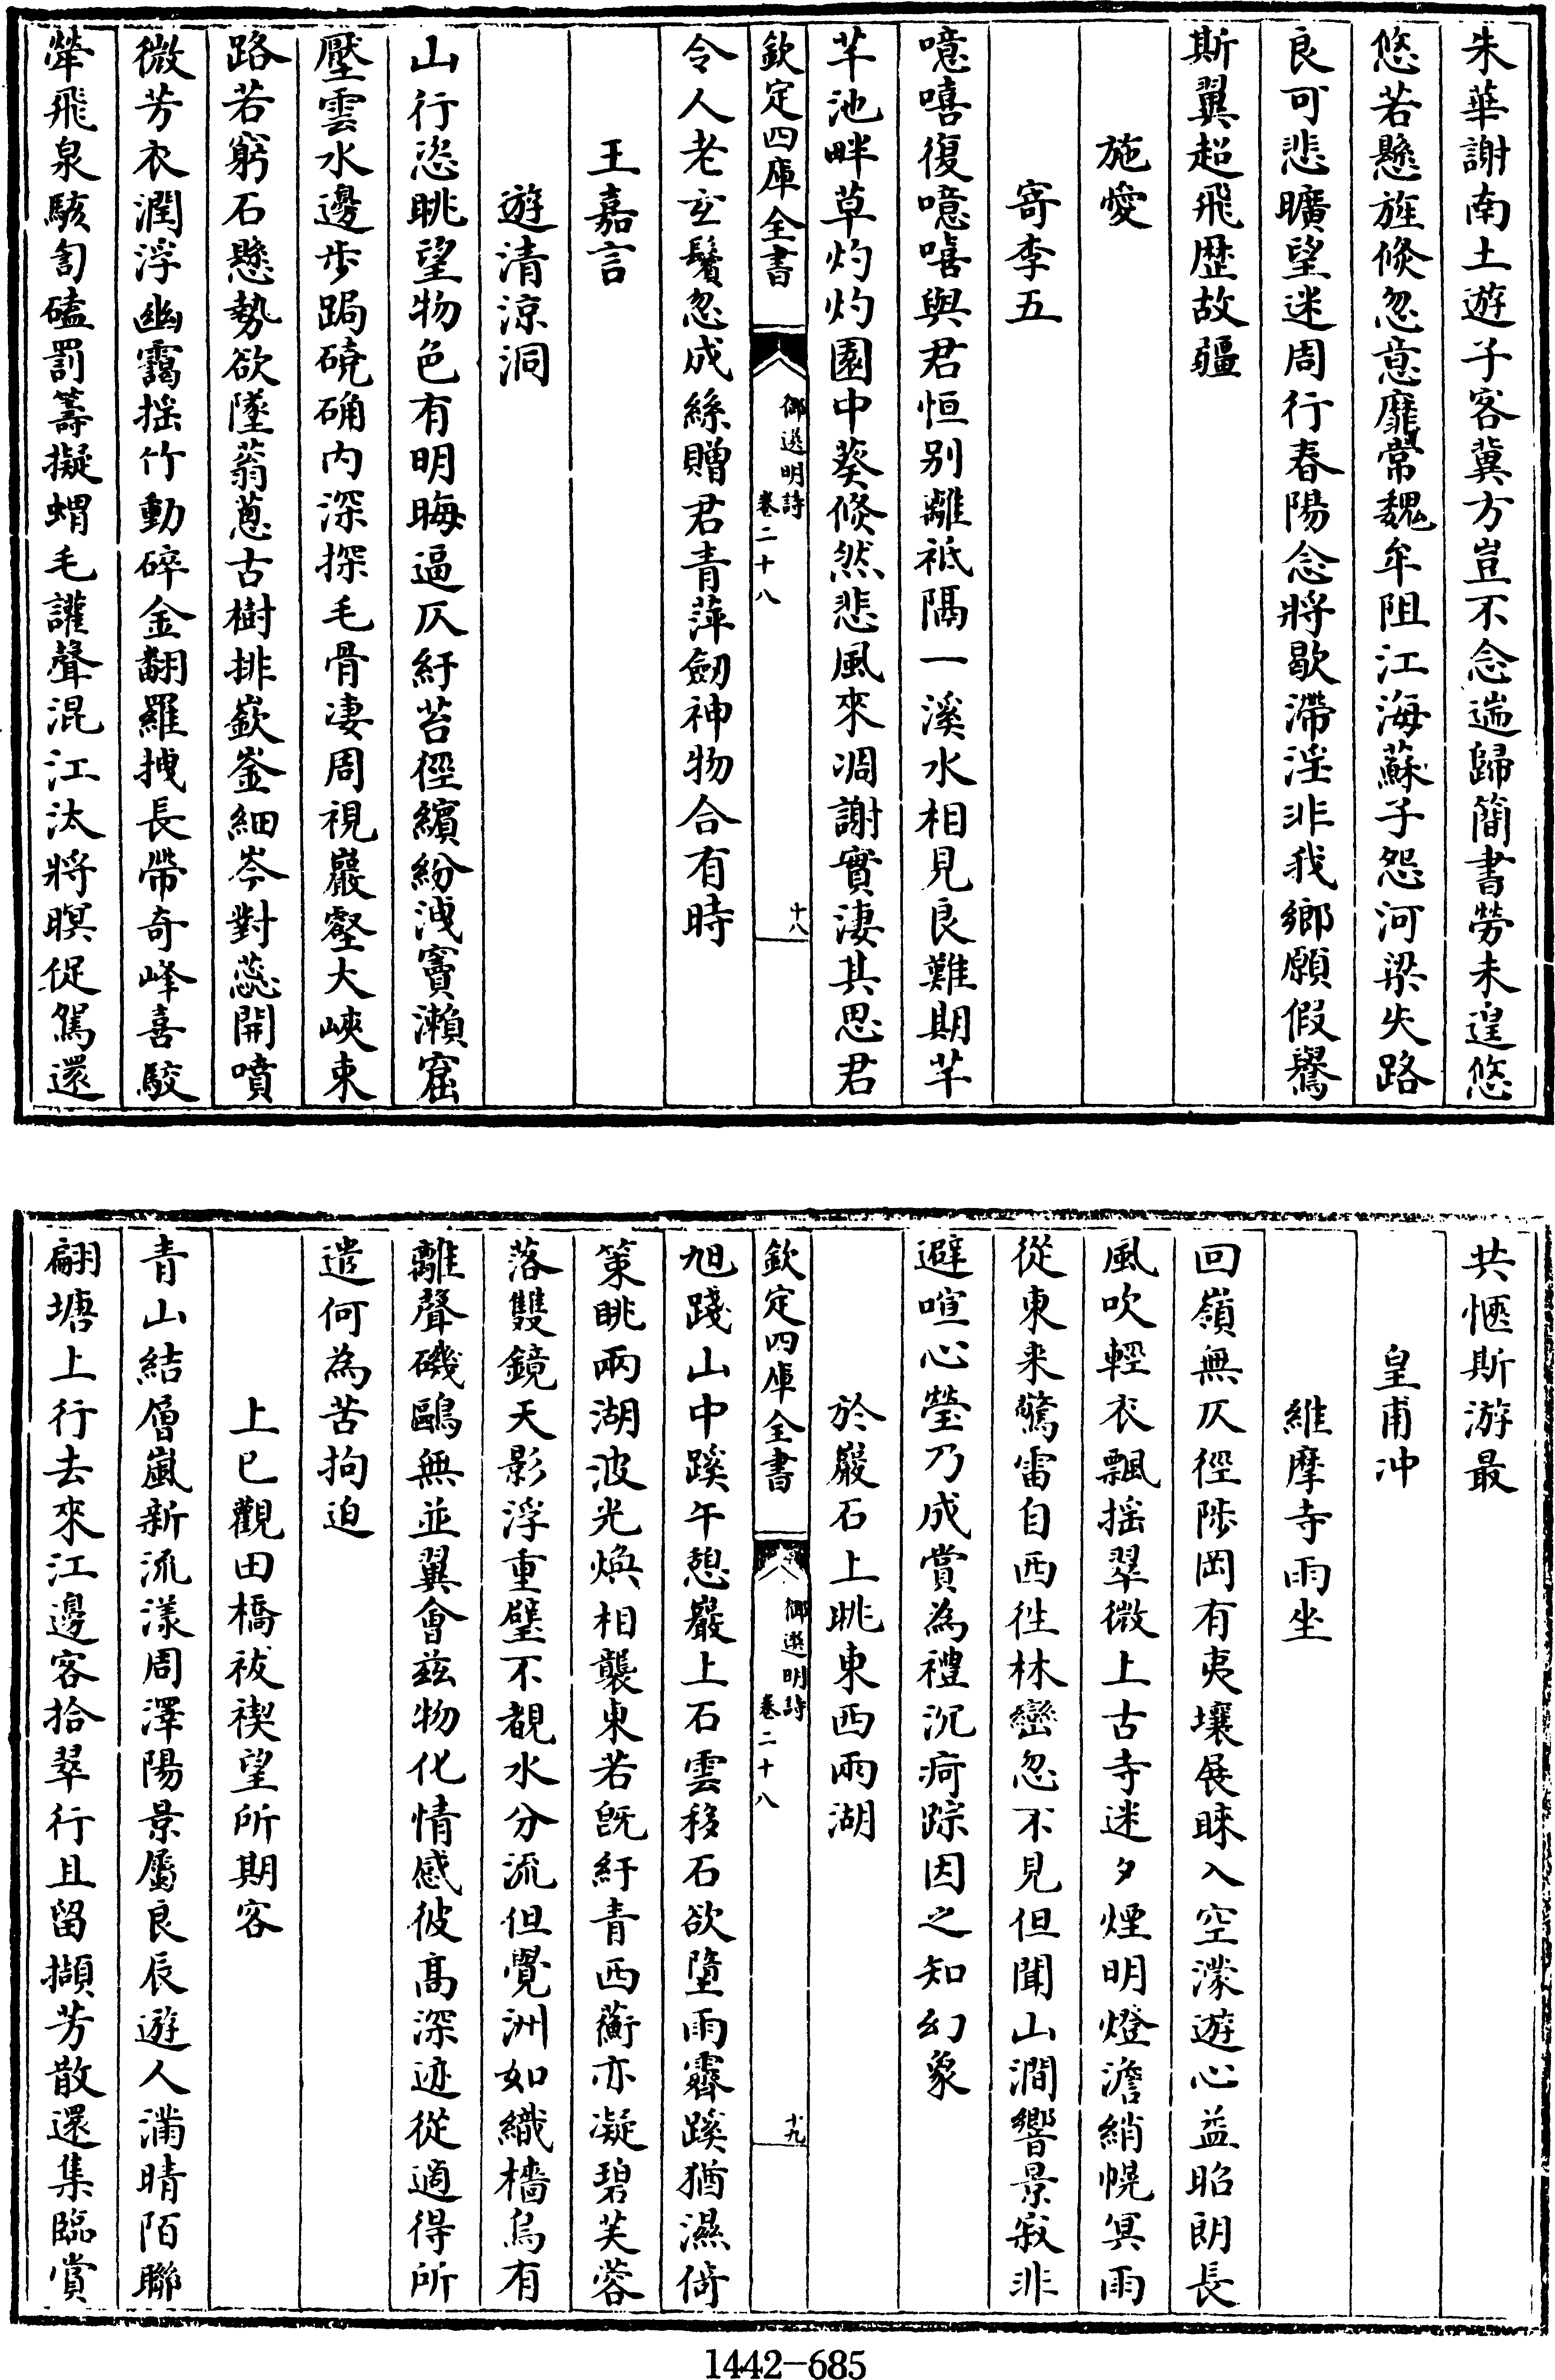 朱華謝南土遊子客冀方豈不念遄歸簡書勞未遑悠
悠若懸旌倐忽意靡常魏牟阻江海蘇子怨河梁失路
良可悲曠望迷周行春陽念將歇滯淫非我鄉願假鸒
斯翼超飛歴故疆
施愛
寄李五
噫嘻復噫嘻與君恒别離祗隔一溪水相見良難期芊
芊池畔草灼灼園中葵倐然悲風來凋謝實淒其思君
欽定四庫全書
御選明詩
卷二十八
十八
令人老玄鬢忽成絲贈君青萍劒神物合有時
王嘉言
遊清涼洞
山行恣眺望物色有明晦逼仄紆苔徑繽紛洩竇瀨窟
壓雲水邊步跼磽确内深探毛骨凄周視巖壑大峽束
路若窮石懸勢欲墜蓊蔥古樹排嶔崟細岑對蕊開噴
微芳衣潤浮幽靄揺竹動碎金翻羅拽長帶奇峰喜駮
犖飛泉駭訇磕罰籌擬蝟毛讙聲混江汰將暝促駕還
共愜斯游最
皇甫冲
維摩寺雨坐
回嶺無仄徑陟岡有夷壤展睞入空濛遊心益昭朗長
風吹輕衣飄揺翠微上古寺迷夕煙明燈澹綃幌冥雨
從東来驚雷自西徃林巒忽不見但聞山澗響景寂非
避喧心瑩乃成賞為禮沉疴踪因之知幻象
於巖石上眺東西兩湖
欽定四庫全書
御選明詩
卷二十八
十九
旭踐山中蹊午憩巖上石雲移石欲墮雨霽蹊猶濕倚
策眺兩湖波光煥相襲東若既紆青西蘅亦凝碧芙蓉
落雙鏡天影浮重璧不覩水分流但覺洲如織檣烏有
離聲磯鷗無並翼會兹物化情感彼髙深迹從適得所
遣何為苦拘迫
上巳觀田橋祓禊望所期客
青山結層嵐新流漾周澤陽景屬良辰遊人滿晴陌聯
翩塘上行去來江邊客拾翠行且留擷芳散還集臨賞
1442-685